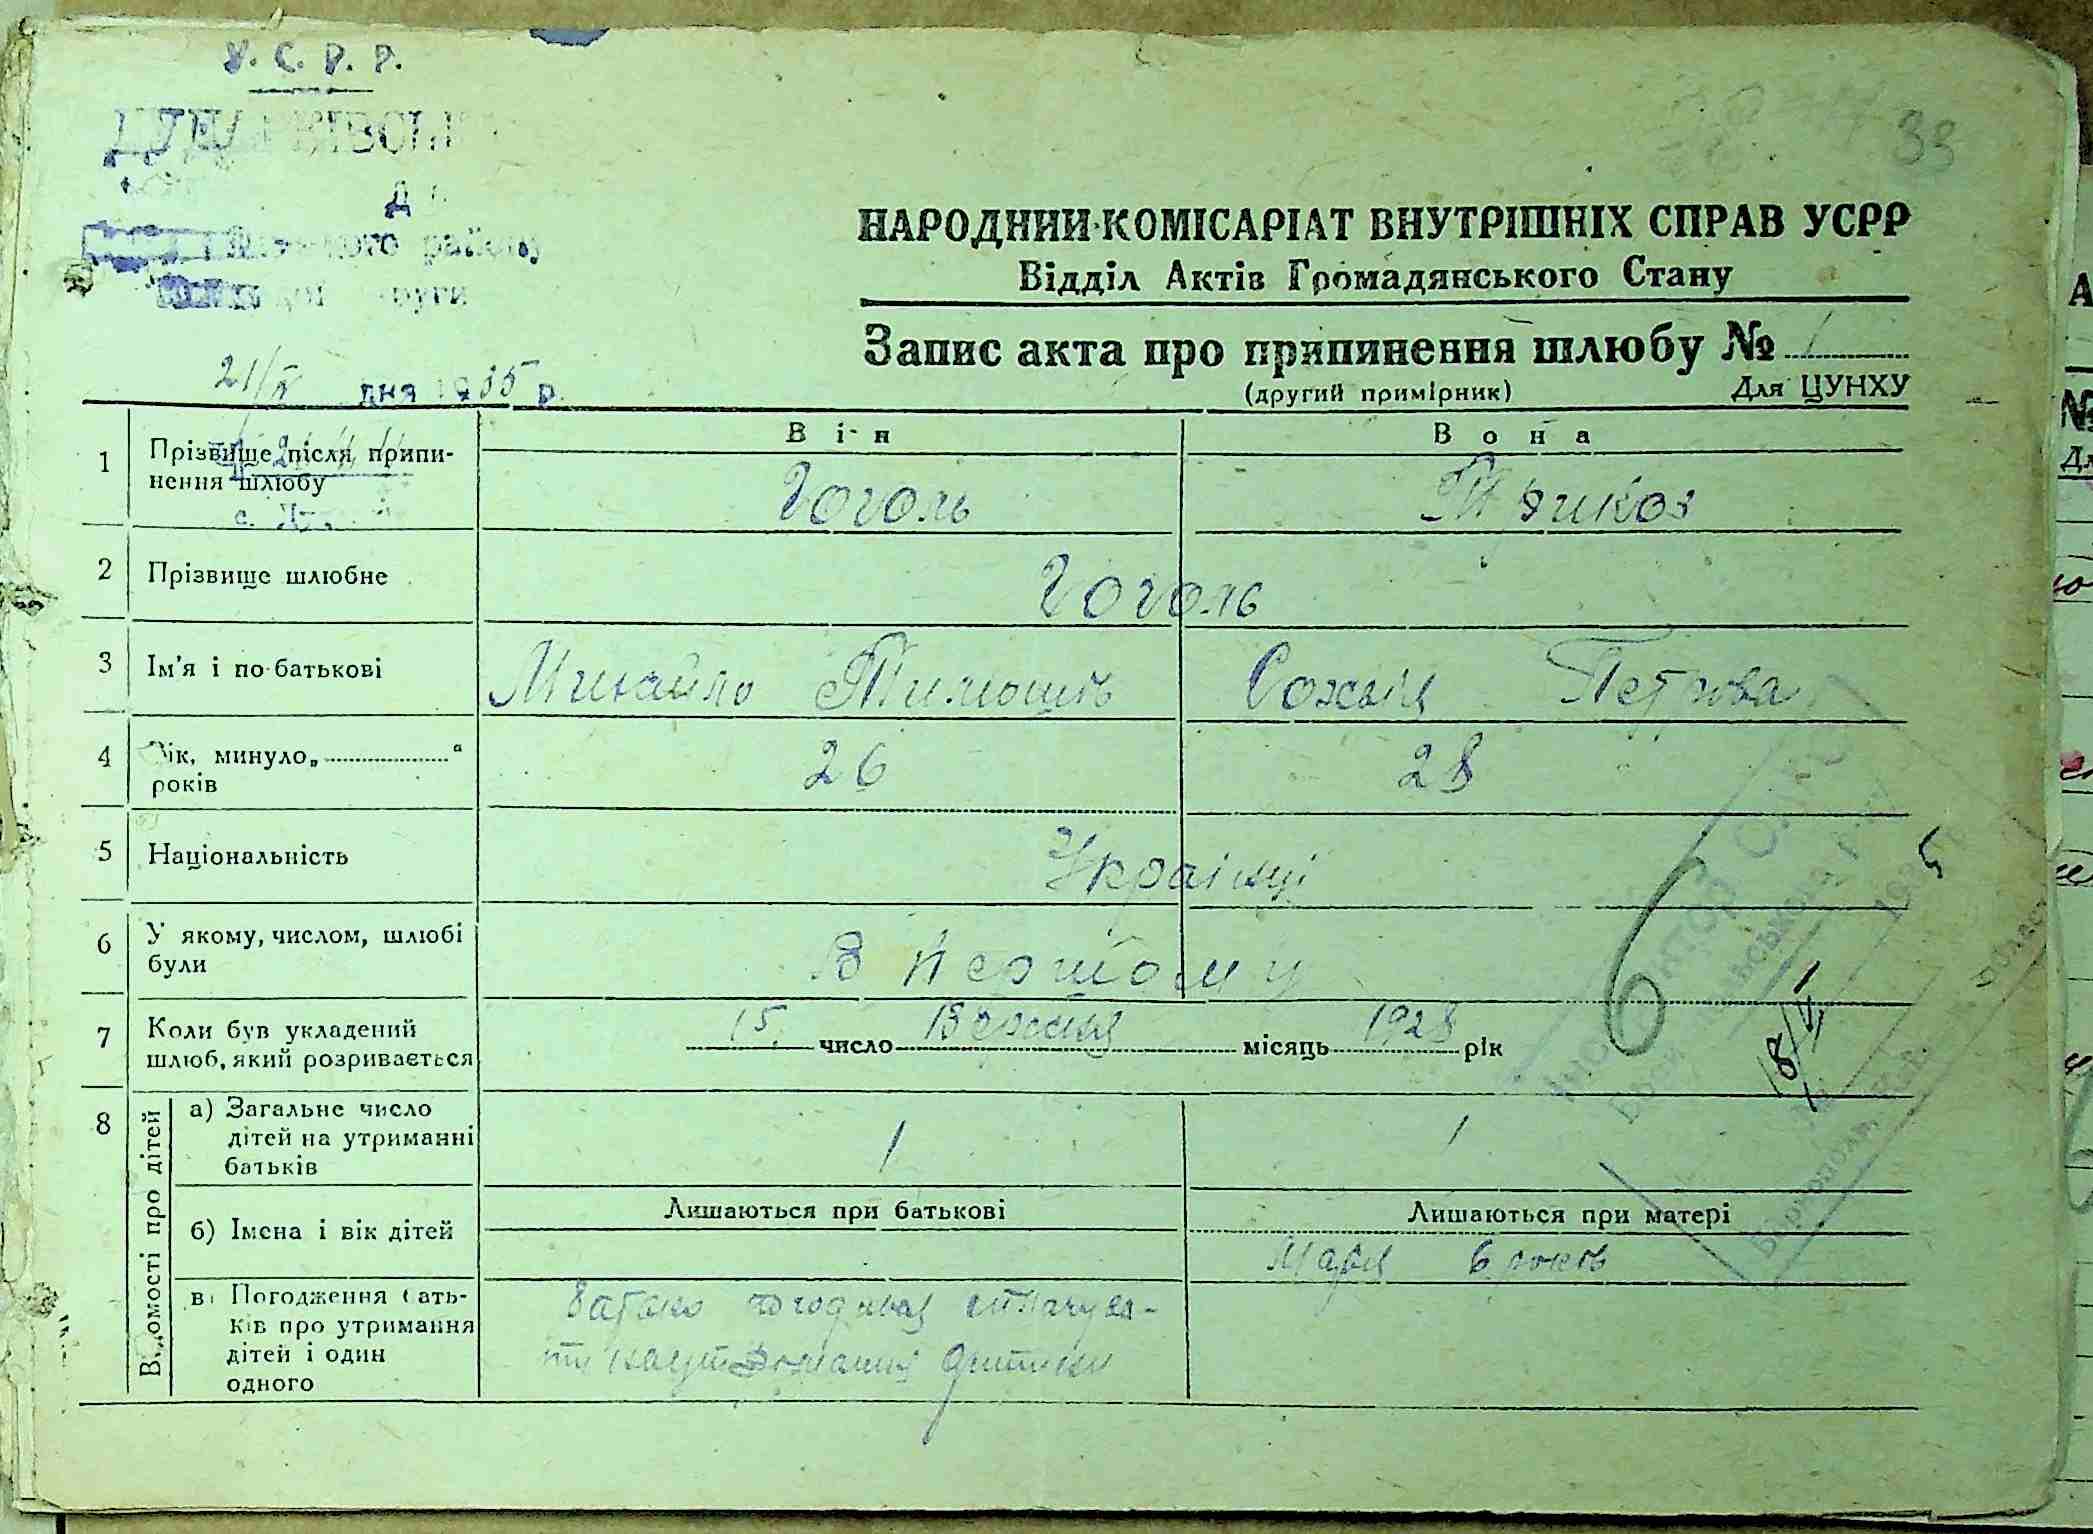 У.С.Р.Р.
району
33
НАРОДНИЙ КОМІСАРІАТ ВНУТРІШНІХ СПРАВ УСРР
Відділ Актів Громадянського Стану
Запис акта про припинення шлюбу № 1
(другий примірник) Для ЦУНХУ
21/X дня 1935 р.
Він Вона
1 Прізвище після припи-
нення шлюбу Гоголь
2 Прізвище шлюбне Гоголь
3 Ім'я і по-батькові Михайло Тимошів Софія Петрова
4 Вік, минуло „ “
років 26 28
5 Національність Українці
6 У якому, числом, шлюбі
були В першому
7 Коли був укладений
шлюб, який розривається 15 число Вересня місяць 1928 рік
18/VI
8 Відомості про дітей
а) Загальне число
дітей на утриманні
батьків 1 1
Лишаються при батькові Лишаються при матері
б) Імена і вік дітей Марія 6 років
в) Погодження бать-
ків про утримання
дітей і один
одного